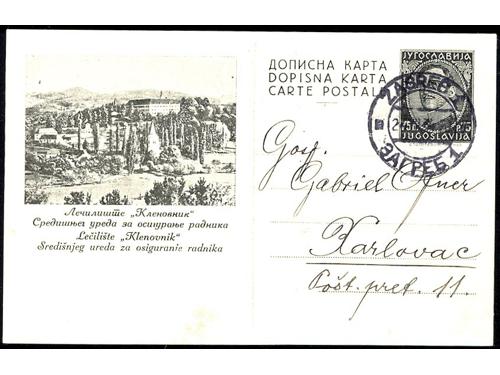 ДОПИСНА КАРТА
DOPISNA KARTA
CARTE POSTALE
ЈУГОСЛАВИЈА
JUGOSLAVIJA
ZAGREB 1
ЗАГРЕБ 1
Gosp.
Gabriel
Karlovac
Pošt. pret. 11.
Лечилиште „Кленовник"
Средишњег уреда за осигурање радника
Lečilište „Klenovnik"
Središnjeg ureda za osiguranje radnika